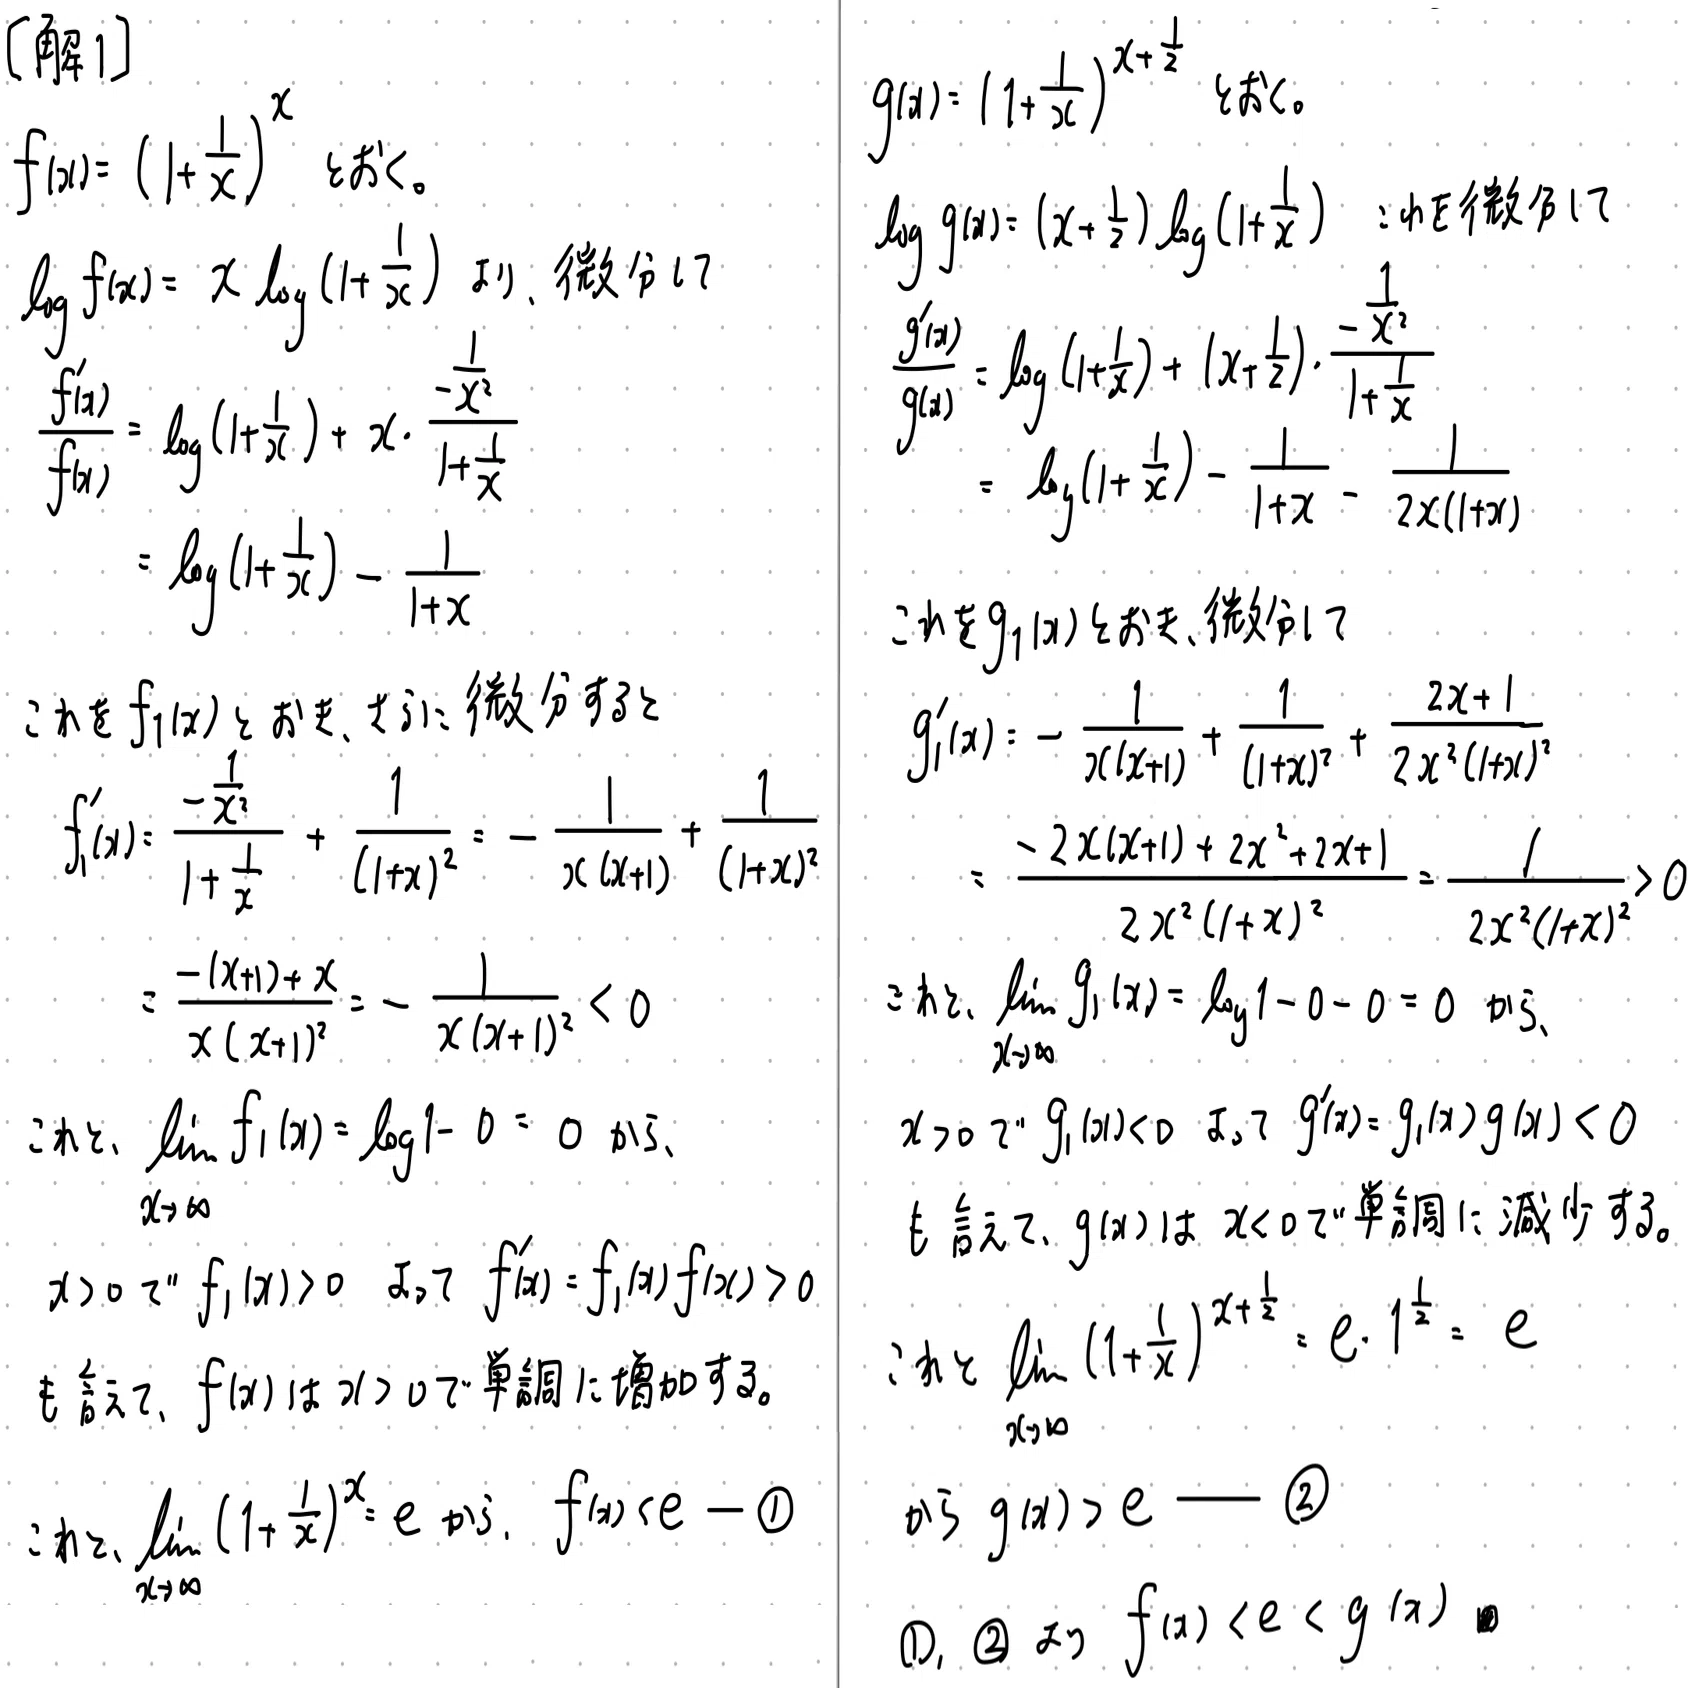 [解1]
f(x) = (1+1/x)^x とおく。
log f(x) = x log(1+1/x) より、微分して
f'(x)/f(x) = log(1+1/x) + x・(-1/x²)/(1+1/x)
= log(1+1/x) - 1/(1+x)
これを f₁(x) とおき、さらに微分すると
f₁'(x) = (-1/x²)/(1+1/x) + 1/(1+x)² = -1/(x(x+1)) + 1/(1+x)²
= (-(x+1)+x)/(x(x+1)²) = -1/(x(x+1)²) < 0
これと、lim_{x→∞} f₁(x) = log1 - 0 = 0 から、
x>0で f₁(x)>0 よって f'(x) = f₁(x)f(x) > 0
も言えて、f(x)は x>0で単調に増加する。
これと、lim_{x→∞} (1+1/x)^x = e から、f(x)<e ―①
g(x) = (1+1/x)^(x+1/2) とおく。
log g(x) = (x+1/2) log(1+1/x) これを微分して
g'(x)/g(x) = log(1+1/x) + (x+1/2)・(-1/x²)/(1+1/x)
= log(1+1/x) - 1/(1+x) - 1/(2x(1+x))
これを g₁(x) とおき、微分して
g₁'(x) = -1/(x(x+1)) + 1/(1+x)² + (2x+1)/(2x²(1+x)²)
= (-2x(x+1)+2x²+2x+1)/(2x²(1+x)²) = 1/(2x²(1+x)²) > 0
これと、lim_{x→∞} g₁(x) = log1 - 0 - 0 = 0 から、
x>0で g₁(x)<0 よって g'(x) = g₁(x)g(x) < 0
も言えて、g(x)は x<0で単調に減少する。
これと lim_{x→∞} (1+1/x)^(x+1/2) = e・1^(1/2) = e
から g(x) > e ―②
①, ②より f(x) < e < g(x) ■